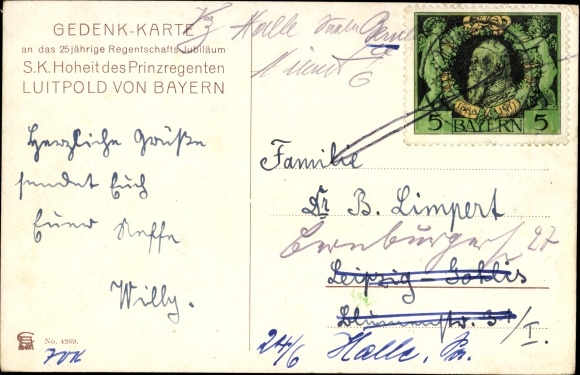 GEDENK-KARTE
an das 25jährige Regentschafts-Jubiläum
S.K. Hoheit des Prinzregenten
LUITPOLD VON BAYERN
Herzliche Grüße
sendet Euch
Euer Neffe
Willy.
No. 4269.
Halle
5 BAYERN 5
Familie
Dr B. Limpert
Bernburgerstr 27
Leipzig-Gohlis
Blumenstr. 31/I.
24/6 Halle,